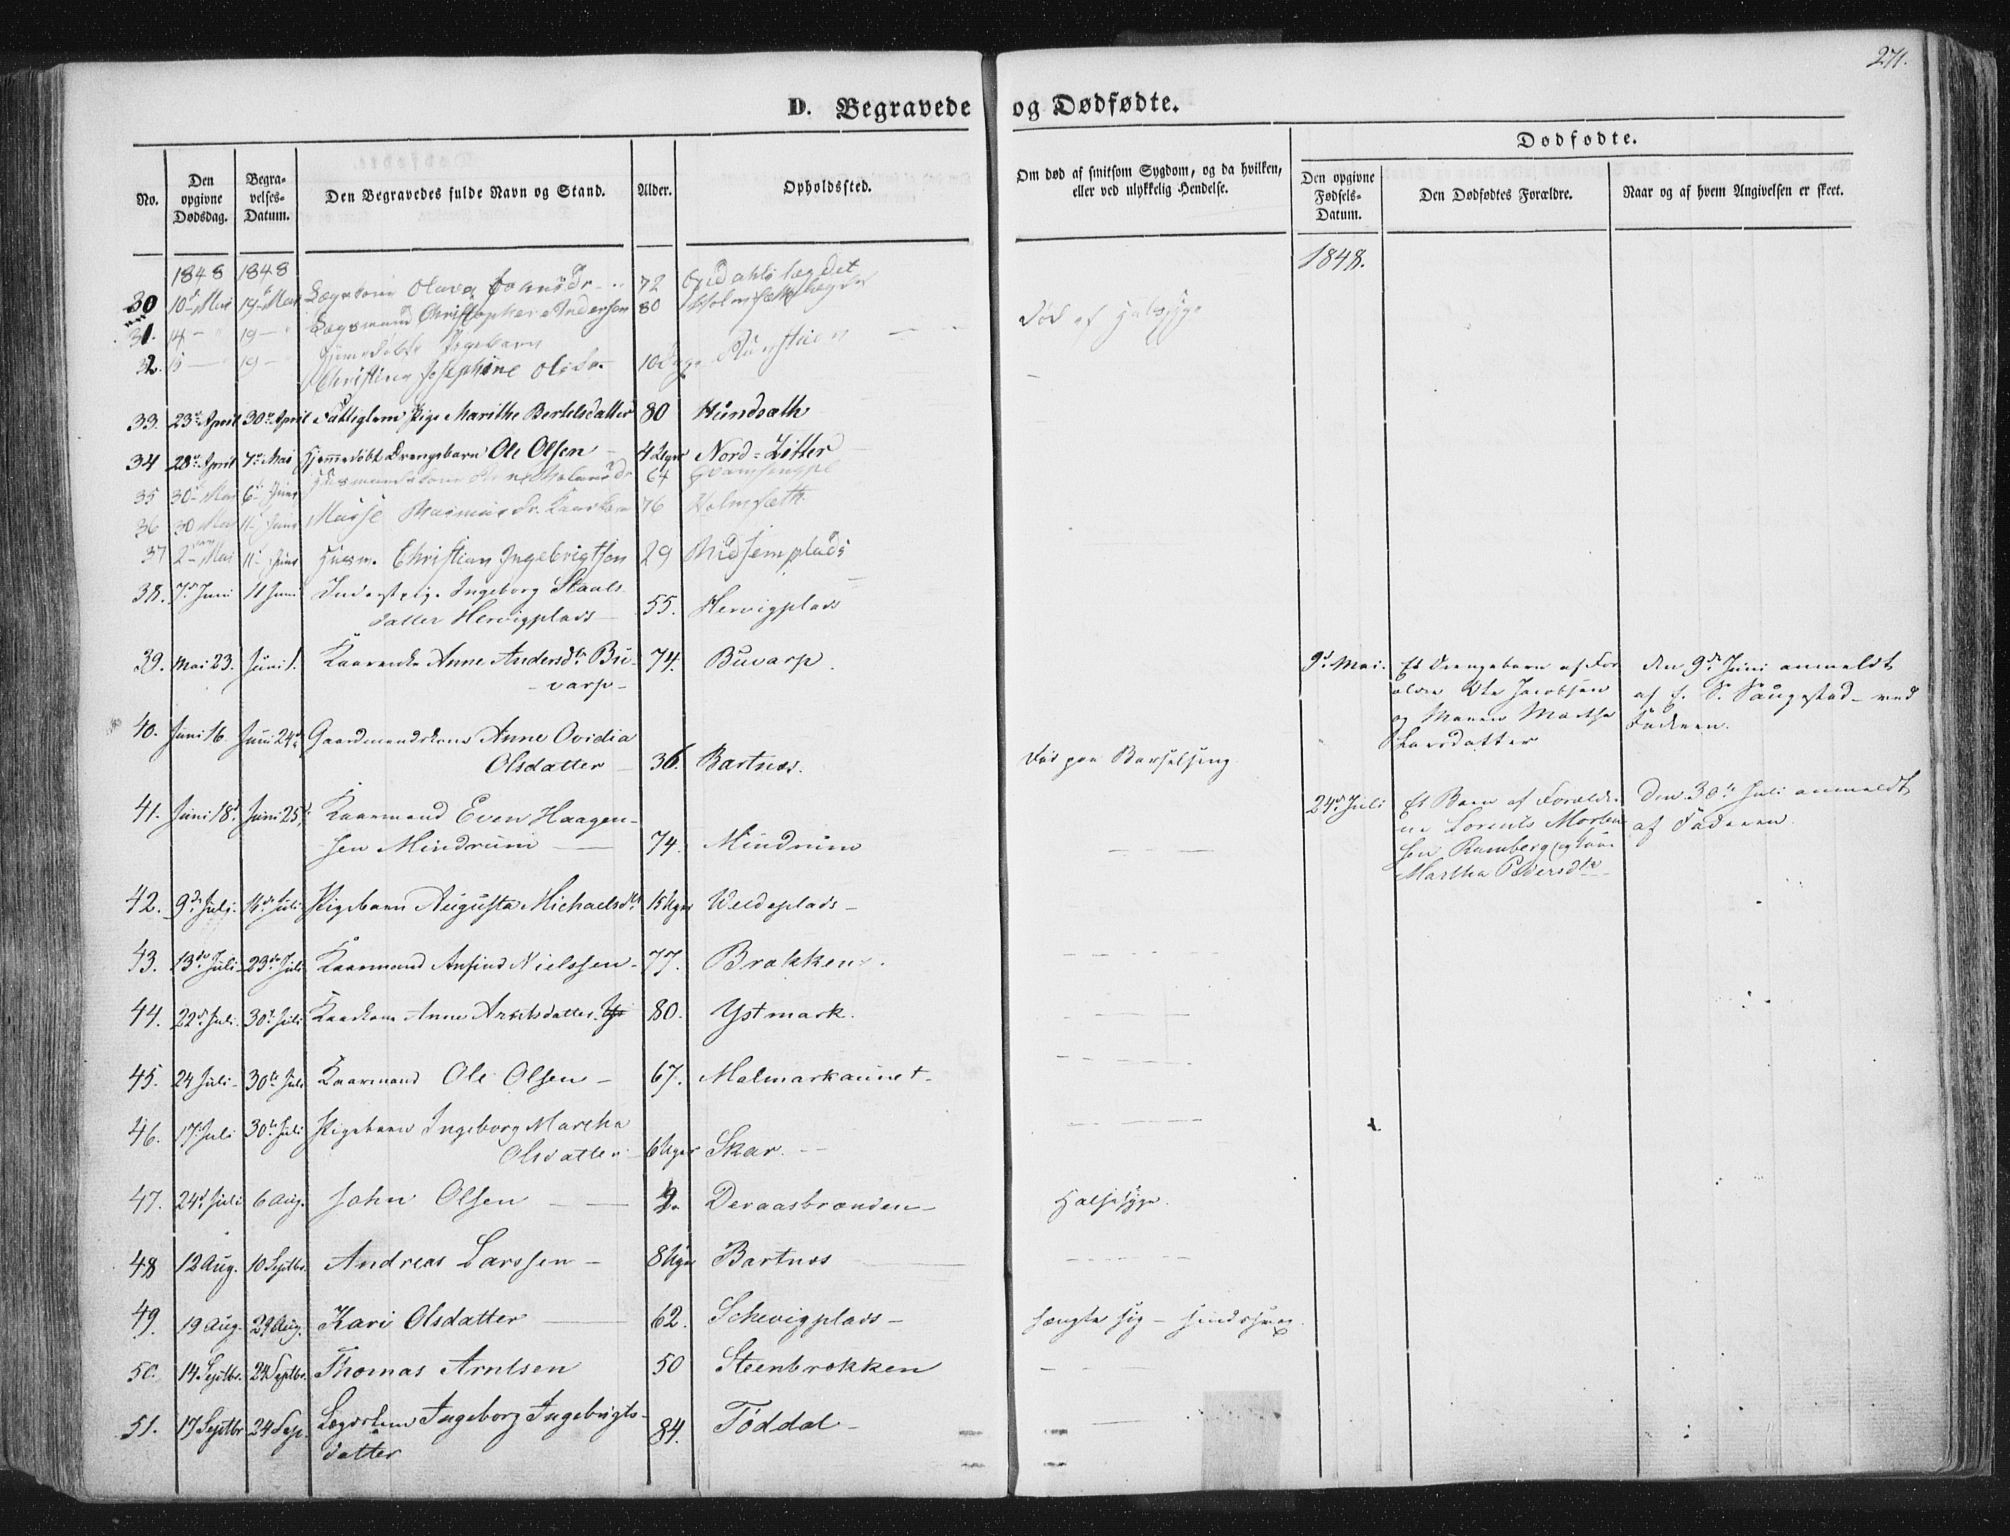 271.
D. Begravede og Dødfødte.
No.
Den opgivne Dødsdag.
Begravelses-Datum.
Den Begravedes fulde Navn og Stand.
Alder.
Opholdssted.
Om død af smitsom Sygdom, og da hvilken, eller ved ulykkelig Hendelse.
Dødfødte.
Den opgivne Fødsels-Datum.
Den Dødfødtes Forældre.
Naar og af hvem Angivelsen er skeet.
1848 1848
1848.
30 10 Mai 14 Mai 72
31. 14 19 Christopher Andersen 80
Død af Halssyge
32. 15 19 Pigebarn
Christine Josephine Olsdr. 10 Dage
33. 23de April 30te April Fattiglem Pige Marithe Bertelsdatter 80 Hundsæth
34 28de April 7de Mai Hjemmedøbt Drengebarn Ole Olsen 4 Uger Nord=Zitter
35 30 Mai 6 Juni 64
36 30 Mai 11 Juni 76 Holmsæth
37 2 11 Juni Husm. Christian Ingebrigtsen 29
38. 7de Juni 11 Juni Inderst pige Ingeborg Staals
datter Hervigplads 55. Hervigplads
39. Mai 23. Juni 1. Kaarenke Anne Andersdtr Bu-
varp 74. Buvarp.
9de Mai. Et Drengebarn af For
ældre Ole Jacobsen
og Maren Martha
Larsdatter
den 9de Juni anmeldt
af
Faderen.
40. Juni 16. Juni 24de Gaardmandskone Anne Ovidia
Olsdatter 36. Bartnæs.
Død paa Barselseng
41. Juni 18d Juni 25d Kaarmand Even Haagen-
sen Mindrum 74. Mindrum
24de Juli Et Barn af Foreldre-
ne Lorents Morten
sen Ramberg og
Martha Pedersdtr
Den 30te Juli anmeldt
af Faderen.
42. 9de Juli. 16de Juli Pigebarn Augusta Michaelsdtr 15 Uger Weldeplads
43. 13de Juli 23de Juli Kaarmand Anfind Nielssen 77. Brækken.
44. 22de Juli. 30te Juli Kaarkone Anne Arntsdatter 80. Ystmark.
45. 24 Juli 30te Juli Kaarmand Ole Olsen 67. Malmarkaunet
46. 17 Juli 30te Juli Pigebarn Ingeborg Martha
Olsdatter 6 Uger Skar.
47. 24d Juli 6 Aug. John Olsen 2. Deraasbrænden
Halssyge.
48 12 Aug. 10 Septbr. Andreas Larssen 8 Uger Bartnæs
49. 19 Aug. 29 Aug. Kari Olsdatter 62. Schevigplads
hængte sig - sindssvag.
50. 14 Septbr. 24 Septbr. Thomas Arntsen 50 Steenbrækken
51. 17 Septbr 24 Sep. Lægdslem Ingeborg Ingebrigts-
datter 84. Føddal